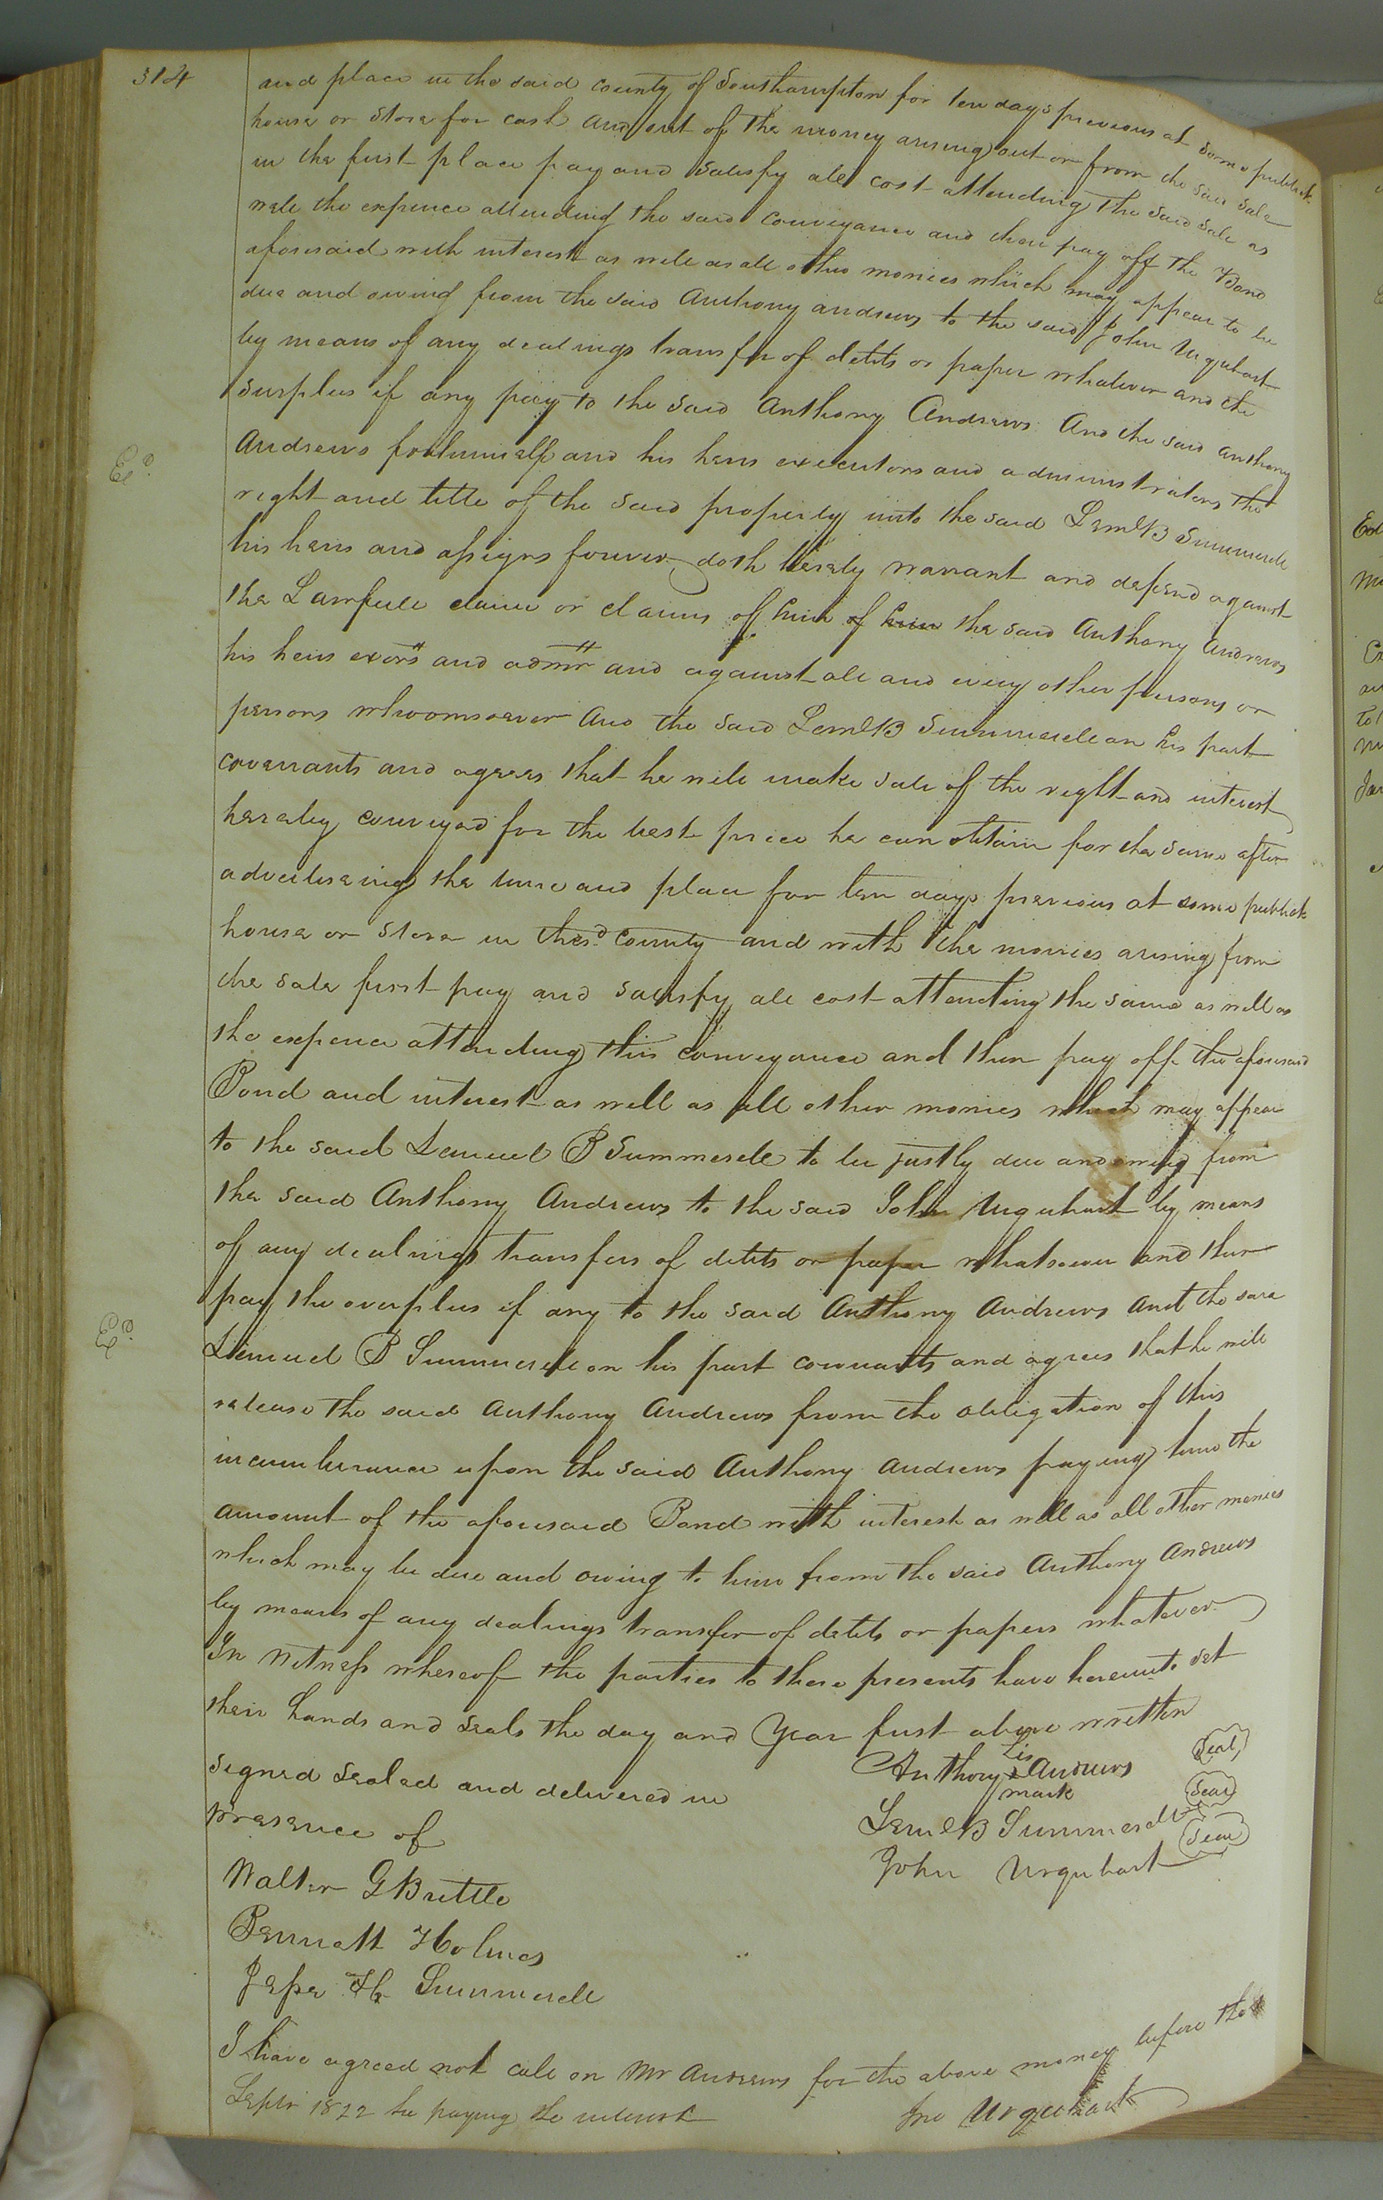 314
and place in the said county of Southampton for ten days previous at some publick
house or store for cash and out of the money arising out or from the said sale
in the first place pay and satisfy all cost attending the said sale as
well the expence attending the said conveyance and then pay off the Bond
aforesaid with interest as well as all other monies which may appear to be
due and owing from the said Anthony Andrews to the said John Urquhart
by means of any dealings transfer of debts or paper whatever and the
surplus if any pay to the said Anthony Andrews And the said Anthony
Andrews for himself and his heirs executors and administrators the
right and title of the said property unto the said Leml B Summerell
his heirs and assigns forever doth hereby warrant and defend against
the Lawfull claim or claims of him of him the said Anthony Andrews
his heirs exors and admrs and against all and every other persons or
persons whoomsoever And the said Leml B Summerell on his part
covenants and agrees that he will make sale of the right and interest
hereby conveyed for the best price he can obtain for the same after
advertiseing the time and place for ten days previous at some publick
house or store in the sd county and with the monies arising from
the sale first pay and satisfy all cost attending the same as well as
the expence attending this conveyance and then pay off the aforesaid
Bond and interest as well as all other monies which may appear
to the said Lemuel B Summerell to be justly due and owing from
the said Anthony Andrews to the said John Urquhart by means
of any dealings transfers of debts or paper whatsoever and then
pay the overplus if any to the said Anthony Andrews And the said
Lemuel B Summerell on his part covenants and agrees that he will
release the said Anthony Andrews from the obligation of this
incumberance upon the said Anthony Andrews paying him the
amount of the aforesaid Bond with interest as well as all other monies
which may be due and owing to him from the said Anthony Andrews
by means of any dealings transfer of debts or papers whatever
In Witness whereof the parties to these presents have hereunto set
their hands and seals the day and Year first above written
Signed Sealed and delivered in
presence of
Walter G Brittle
Bennett Holmes
Jesse H Summerell
his
Anthony x Andrews Seal
mark
Leml B Summerell Seal
John Urquhart Seal
I have agreed not call on Mr Andrews for the above money before the
Septr 1822 he paying the interest
Jno Urquhart